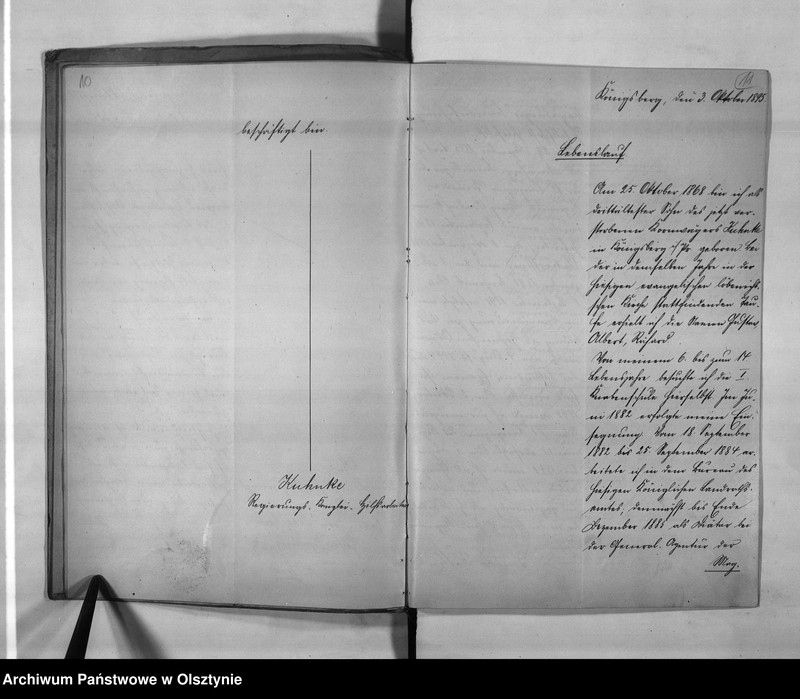 10
beschäftigt bin.
Kuhnke
Regierungs-Kanzlei-Hilfsarbeiter
11
Königsberg, den 3. Oktober 1895
Lebenslauf
Am 25 Oktober 1868 bin ich als
drittältester Sohn des jetzt ver-
storbenen Kornwägers Kuhnke
in Königsberg i/Pr. geboren. Bei
der in demselben Jahre in der
hiesigen evangelischen löbenicht-
schen Kirche stattfindenden Tau-
fe erhielt ich die Namen Gustav
Albert, Richard.
Von meinem 6. bis zum 14
Lebensjahre besuchte ich die I.
hierselbst. Im Ju-
ni 1882 erfolgte meine Ein-
segnung. Vom 18. September
1882 bis 25. September 1884 ar-
beitete ich in dem Bureau des
hiesigen Königlichen Landraths-
amtes, demnächst bis Ende
Dezember 1885 als Diätar bei
der General-Agentur der
Mag.
Archiwum Państwowe w Olsztynie